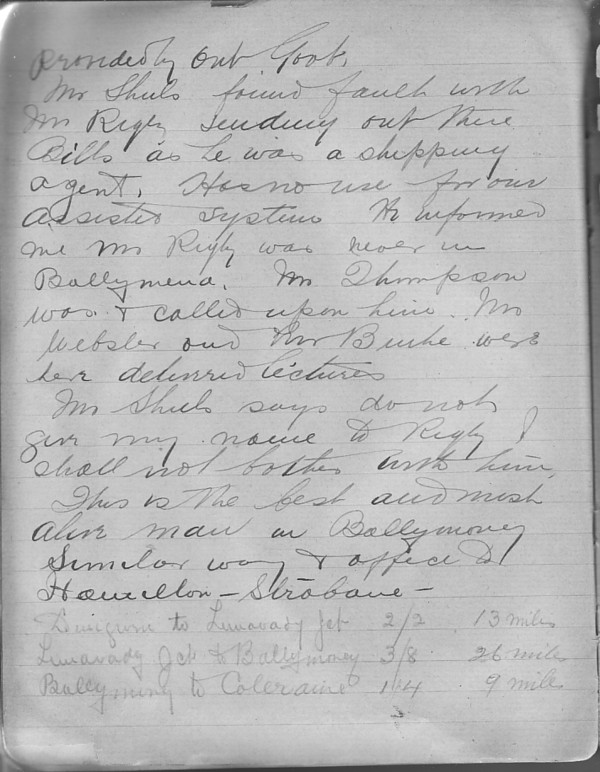 provided by Our Govt.
Mr Shiels found fault with
Mr Rigby sending out there
Bills as he was a shipping
agent. Has no use for our
Assisted System He informed
me Mr Rigby was never in
Ballymena. Mr Thompson
was & called upon him. Mr
Webster and Mr Burke were
here delivered lectures
Mr Shiels says do not
give my name to Rigby I
shall not bother with him.
This is the best and most
alive man in Ballymoney
Similar way & office to
Hamilton – Strabane –
to Limavady Jct 2/2 13 miles
Limavady Jct to Ballymoney 3/8 26 miles
Ballymoney to Coleraine 1/4 9 miles